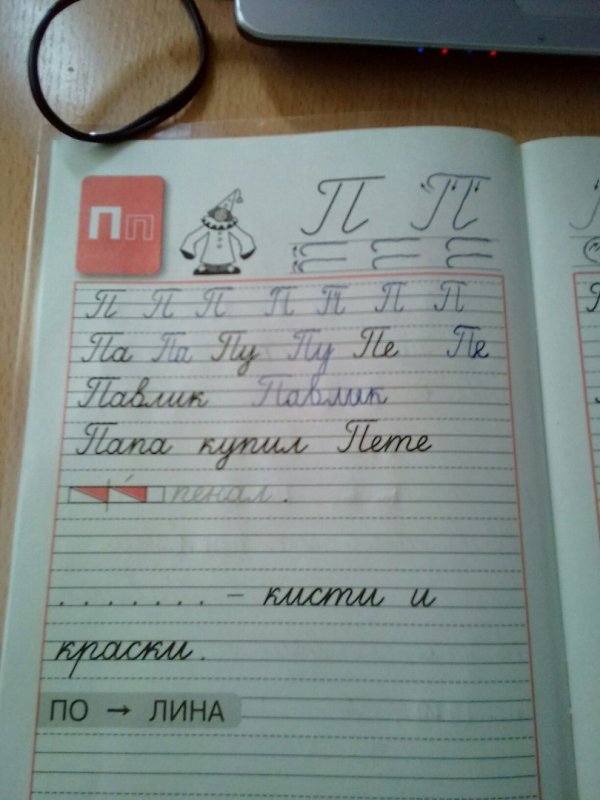 Пп П П
П П П П П П П
Па Па Пу Пу Пе Пе
Павлик Павлик
Папа купил Пете
пенал.
. . . . . . . – кисти и
краски.
ПО → ЛИНА